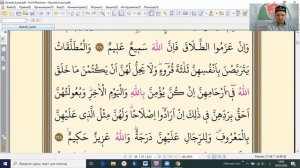 وَاِنْ عَزَمُوا الطَّلَاقَ فَاِنَّ اللّٰهَ سَمٖيعٌ عَلٖيمٌ ﴿٢٢٧﴾ وَالْمُطَلَّقَاتُ
يَتَرَبَّصْنَ بِاَنْفُسِهِنَّ ثَلٰثَةَ قُرُٓوءٍ وَلَا يَحِلُّ لَهُنَّ اَنْ يَكْتُمْنَ مَا خَلَقَ
اللّٰهُ فٖٓى اَرْحَامِهِنَّ اِنْ كُنَّ يُؤْمِنَّ بِاللّٰهِ وَالْيَوْمِ الْاٰخِرِ وَبُعُولَتُهُنَّ
اَحَقُّ بِرَدِّهِنَّ فٖى ذٰلِكَ اِنْ اَرَادُٓوا اِصْلَاحًا وَلَهُنَّ مِثْلُ الَّذٖى عَلَيْهِنَّ
بِالْمَعْرُوفِ وَلِلرِّجَالِ عَلَيْهِنَّ دَرَجَةٌ وَاللّٰهُ عَزٖيزٌ حَكٖيمٌ ﴿٢٢٨﴾